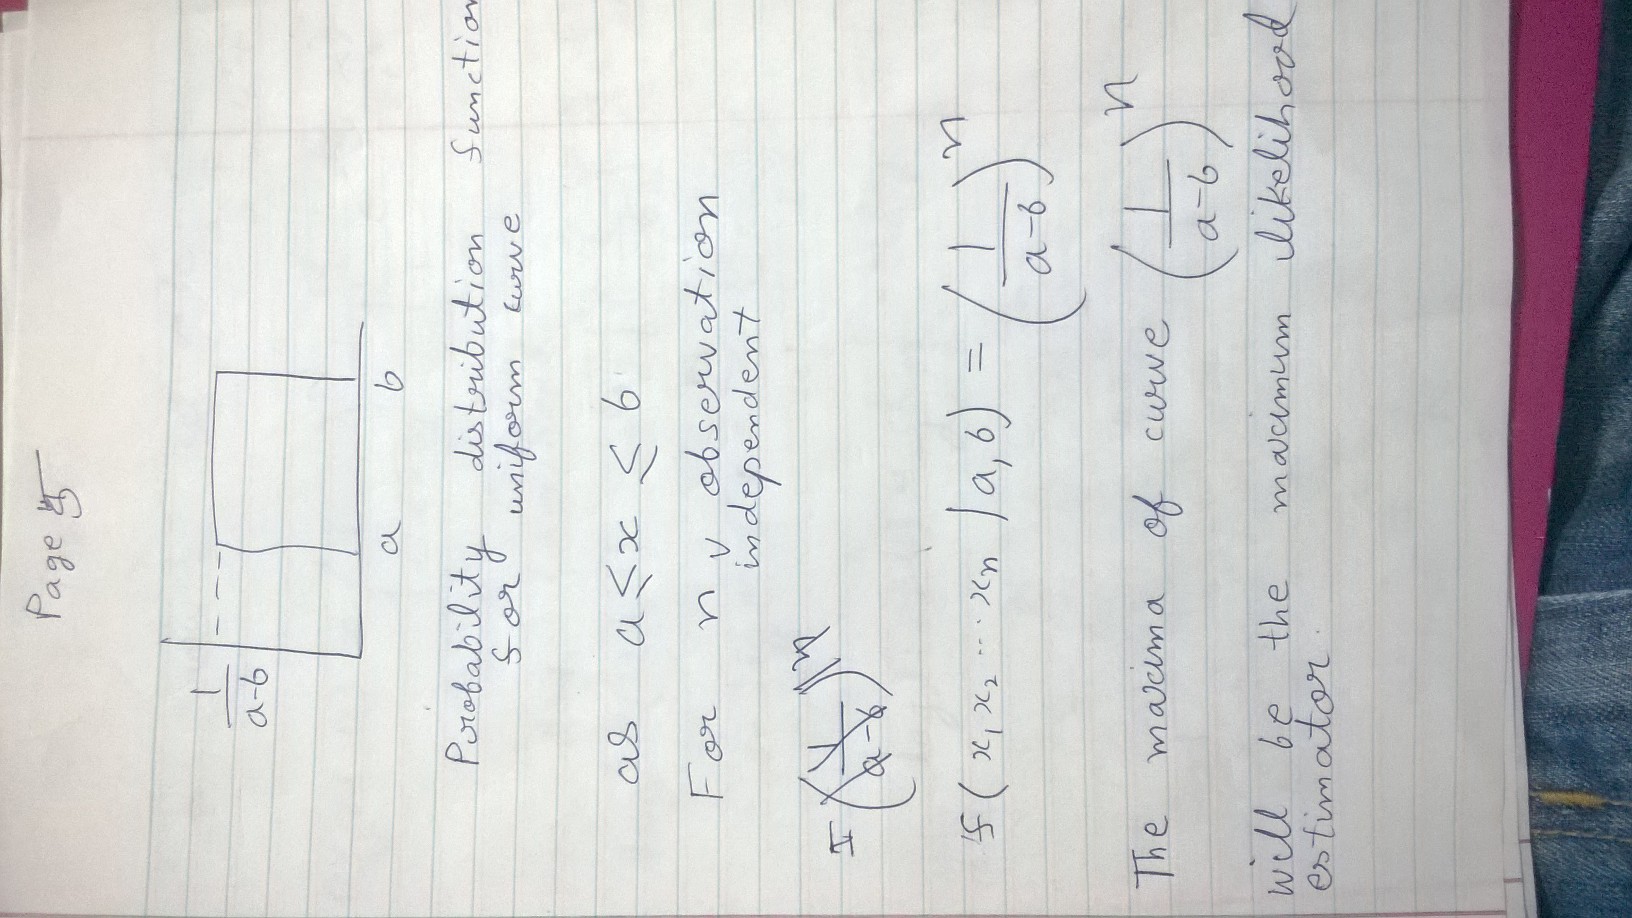 Page 5
1/(a-b)
a b
Probability distribution function
for uniform curve
as a ≤ x ≤ b
For n ∨ observation
independent
f(x₁ x₂ .... xₙ | a, b) = (1/(a-b))ⁿ
The maxima of curve (1/(a-b))ⁿ
will be the maximum likelihood
estimator.